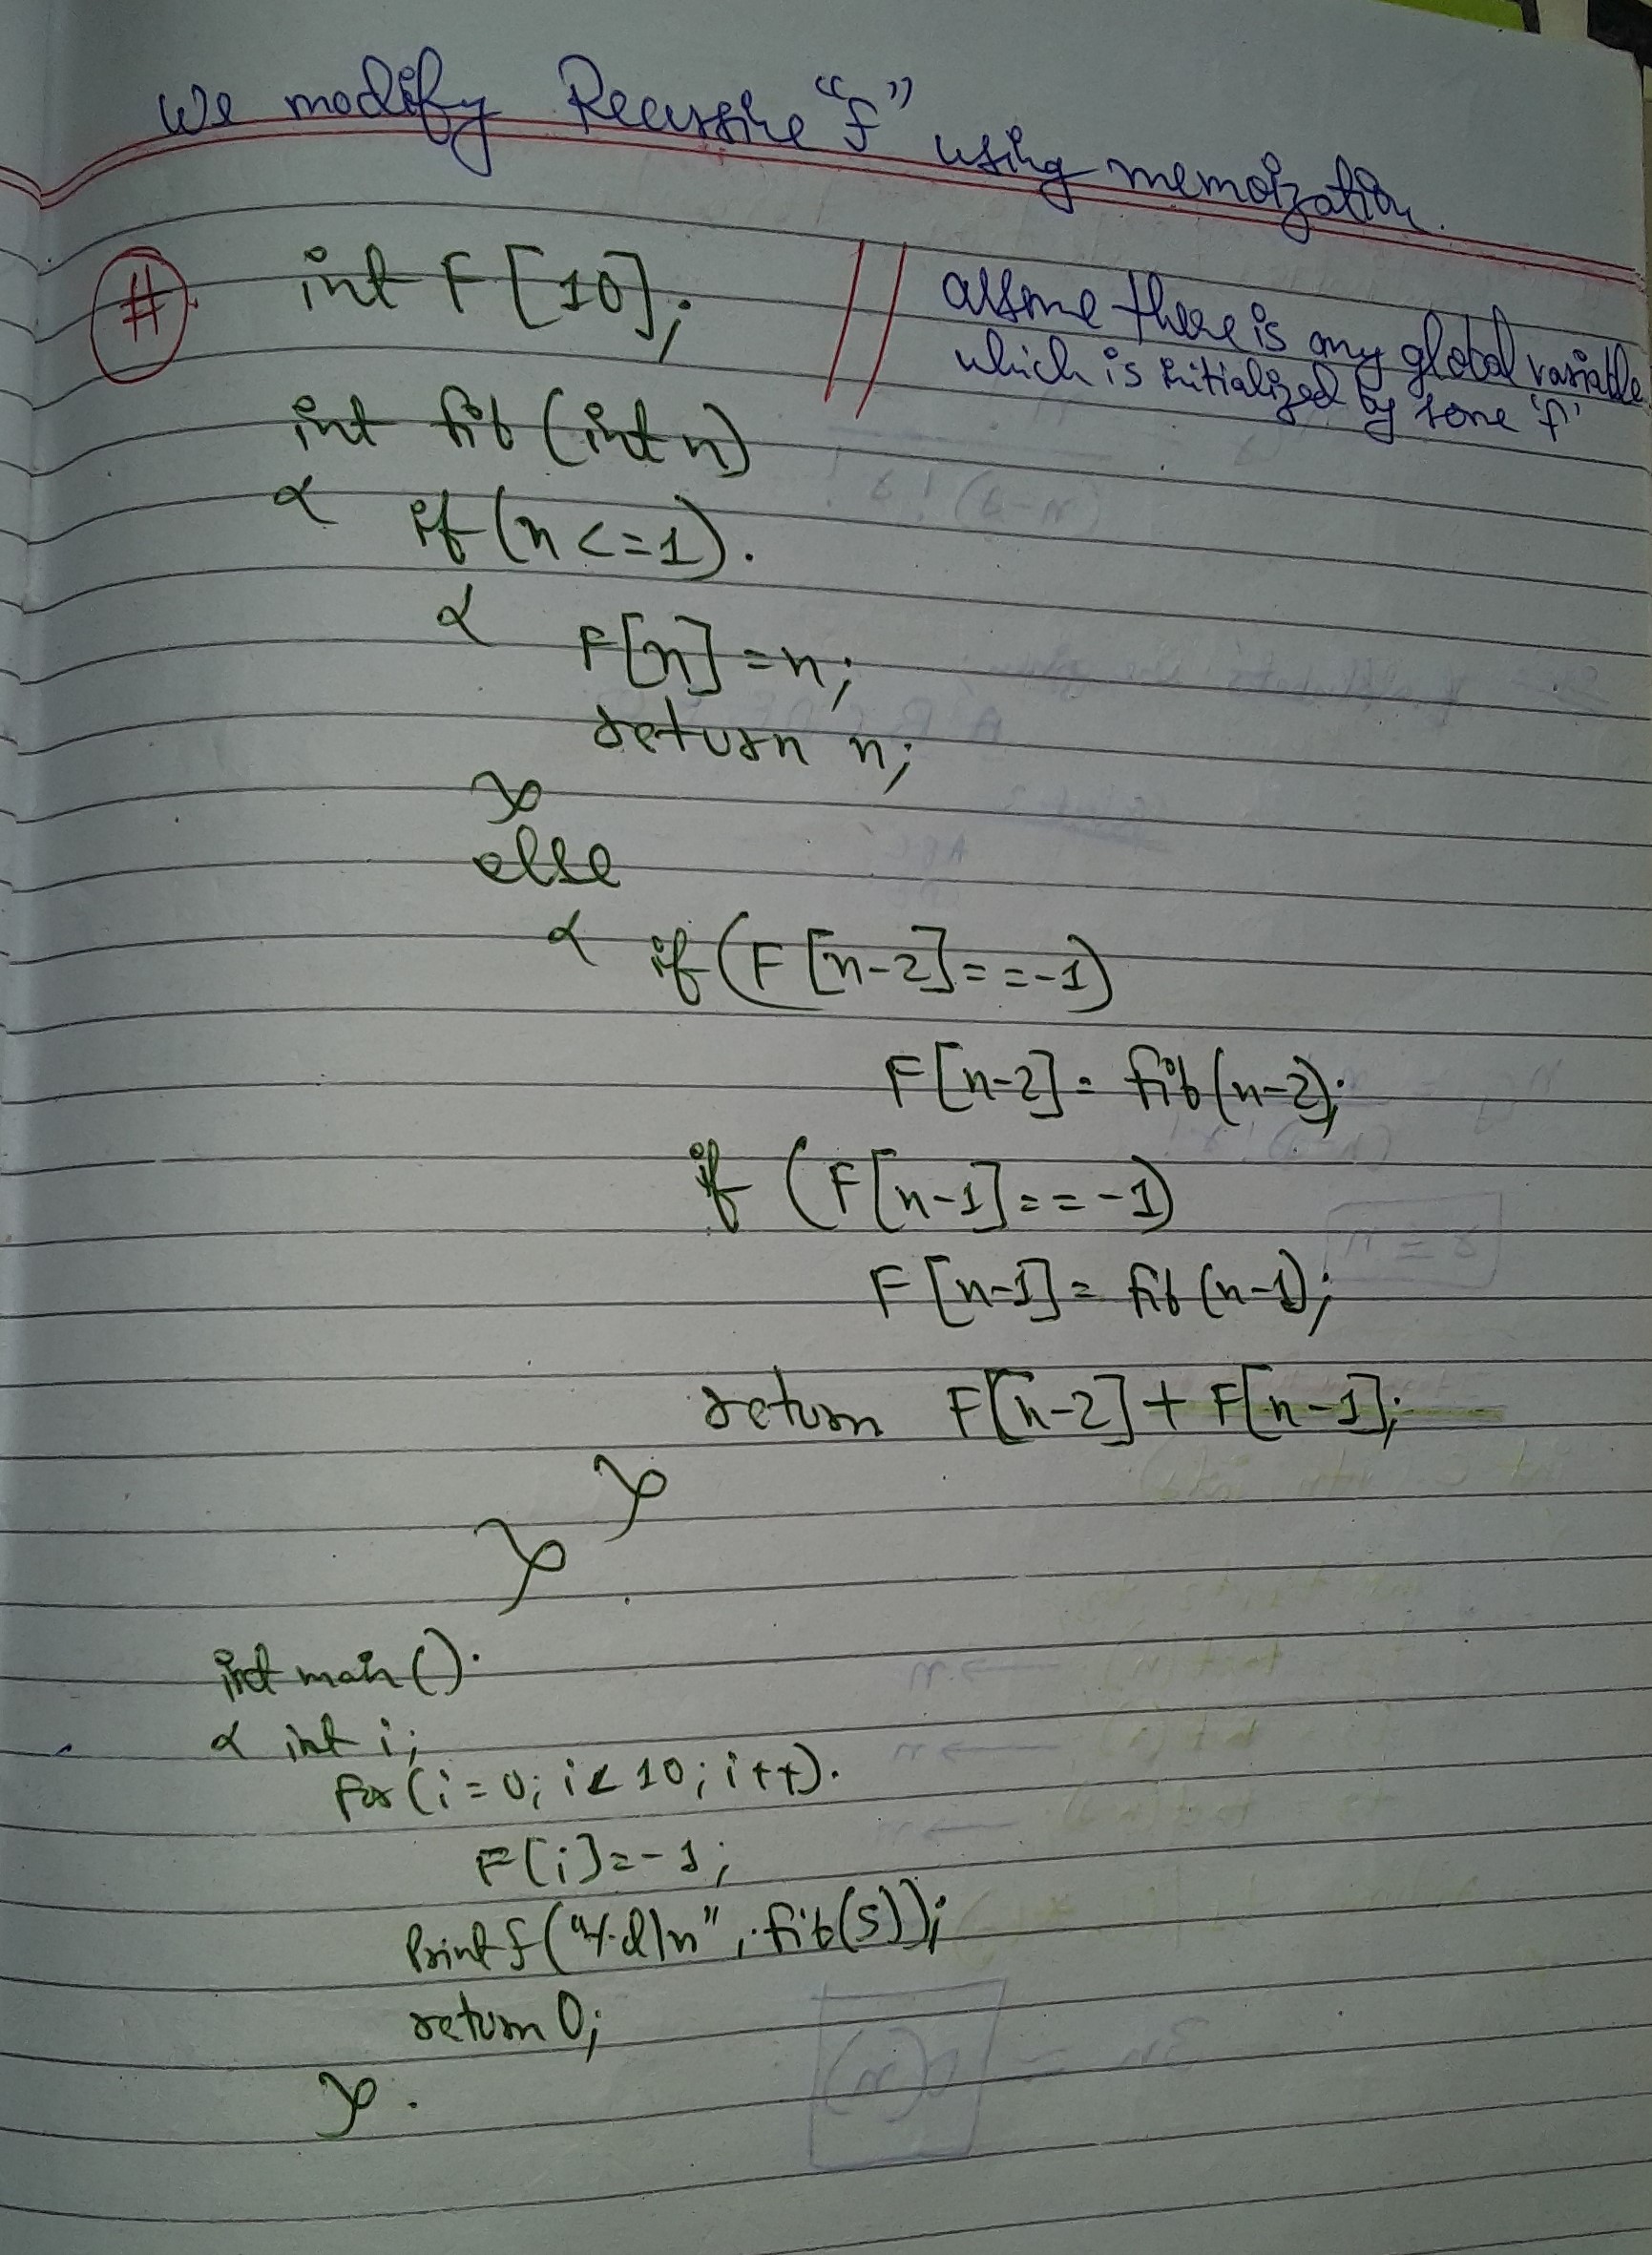 We modify Recursive "f" using memoization
# int F[10]; // assume there is any global variable
which is initialized by some 'f'
int fib(int n)
{ if(n<=1).
{ F[n]=n;
return n;
}
else
{ if(F[n-2]==-1)
F[n-2]= fib(n-2);
if (F[n-1]==-1)
F[n-1]= fib(n-1);
return F[n-2]+F[n-1];
}
}
int main().
{ int i;
for(i=0; i<10; i++).
F[i]=-1;
Printf("%d\n", fib(5));
return 0;
}.